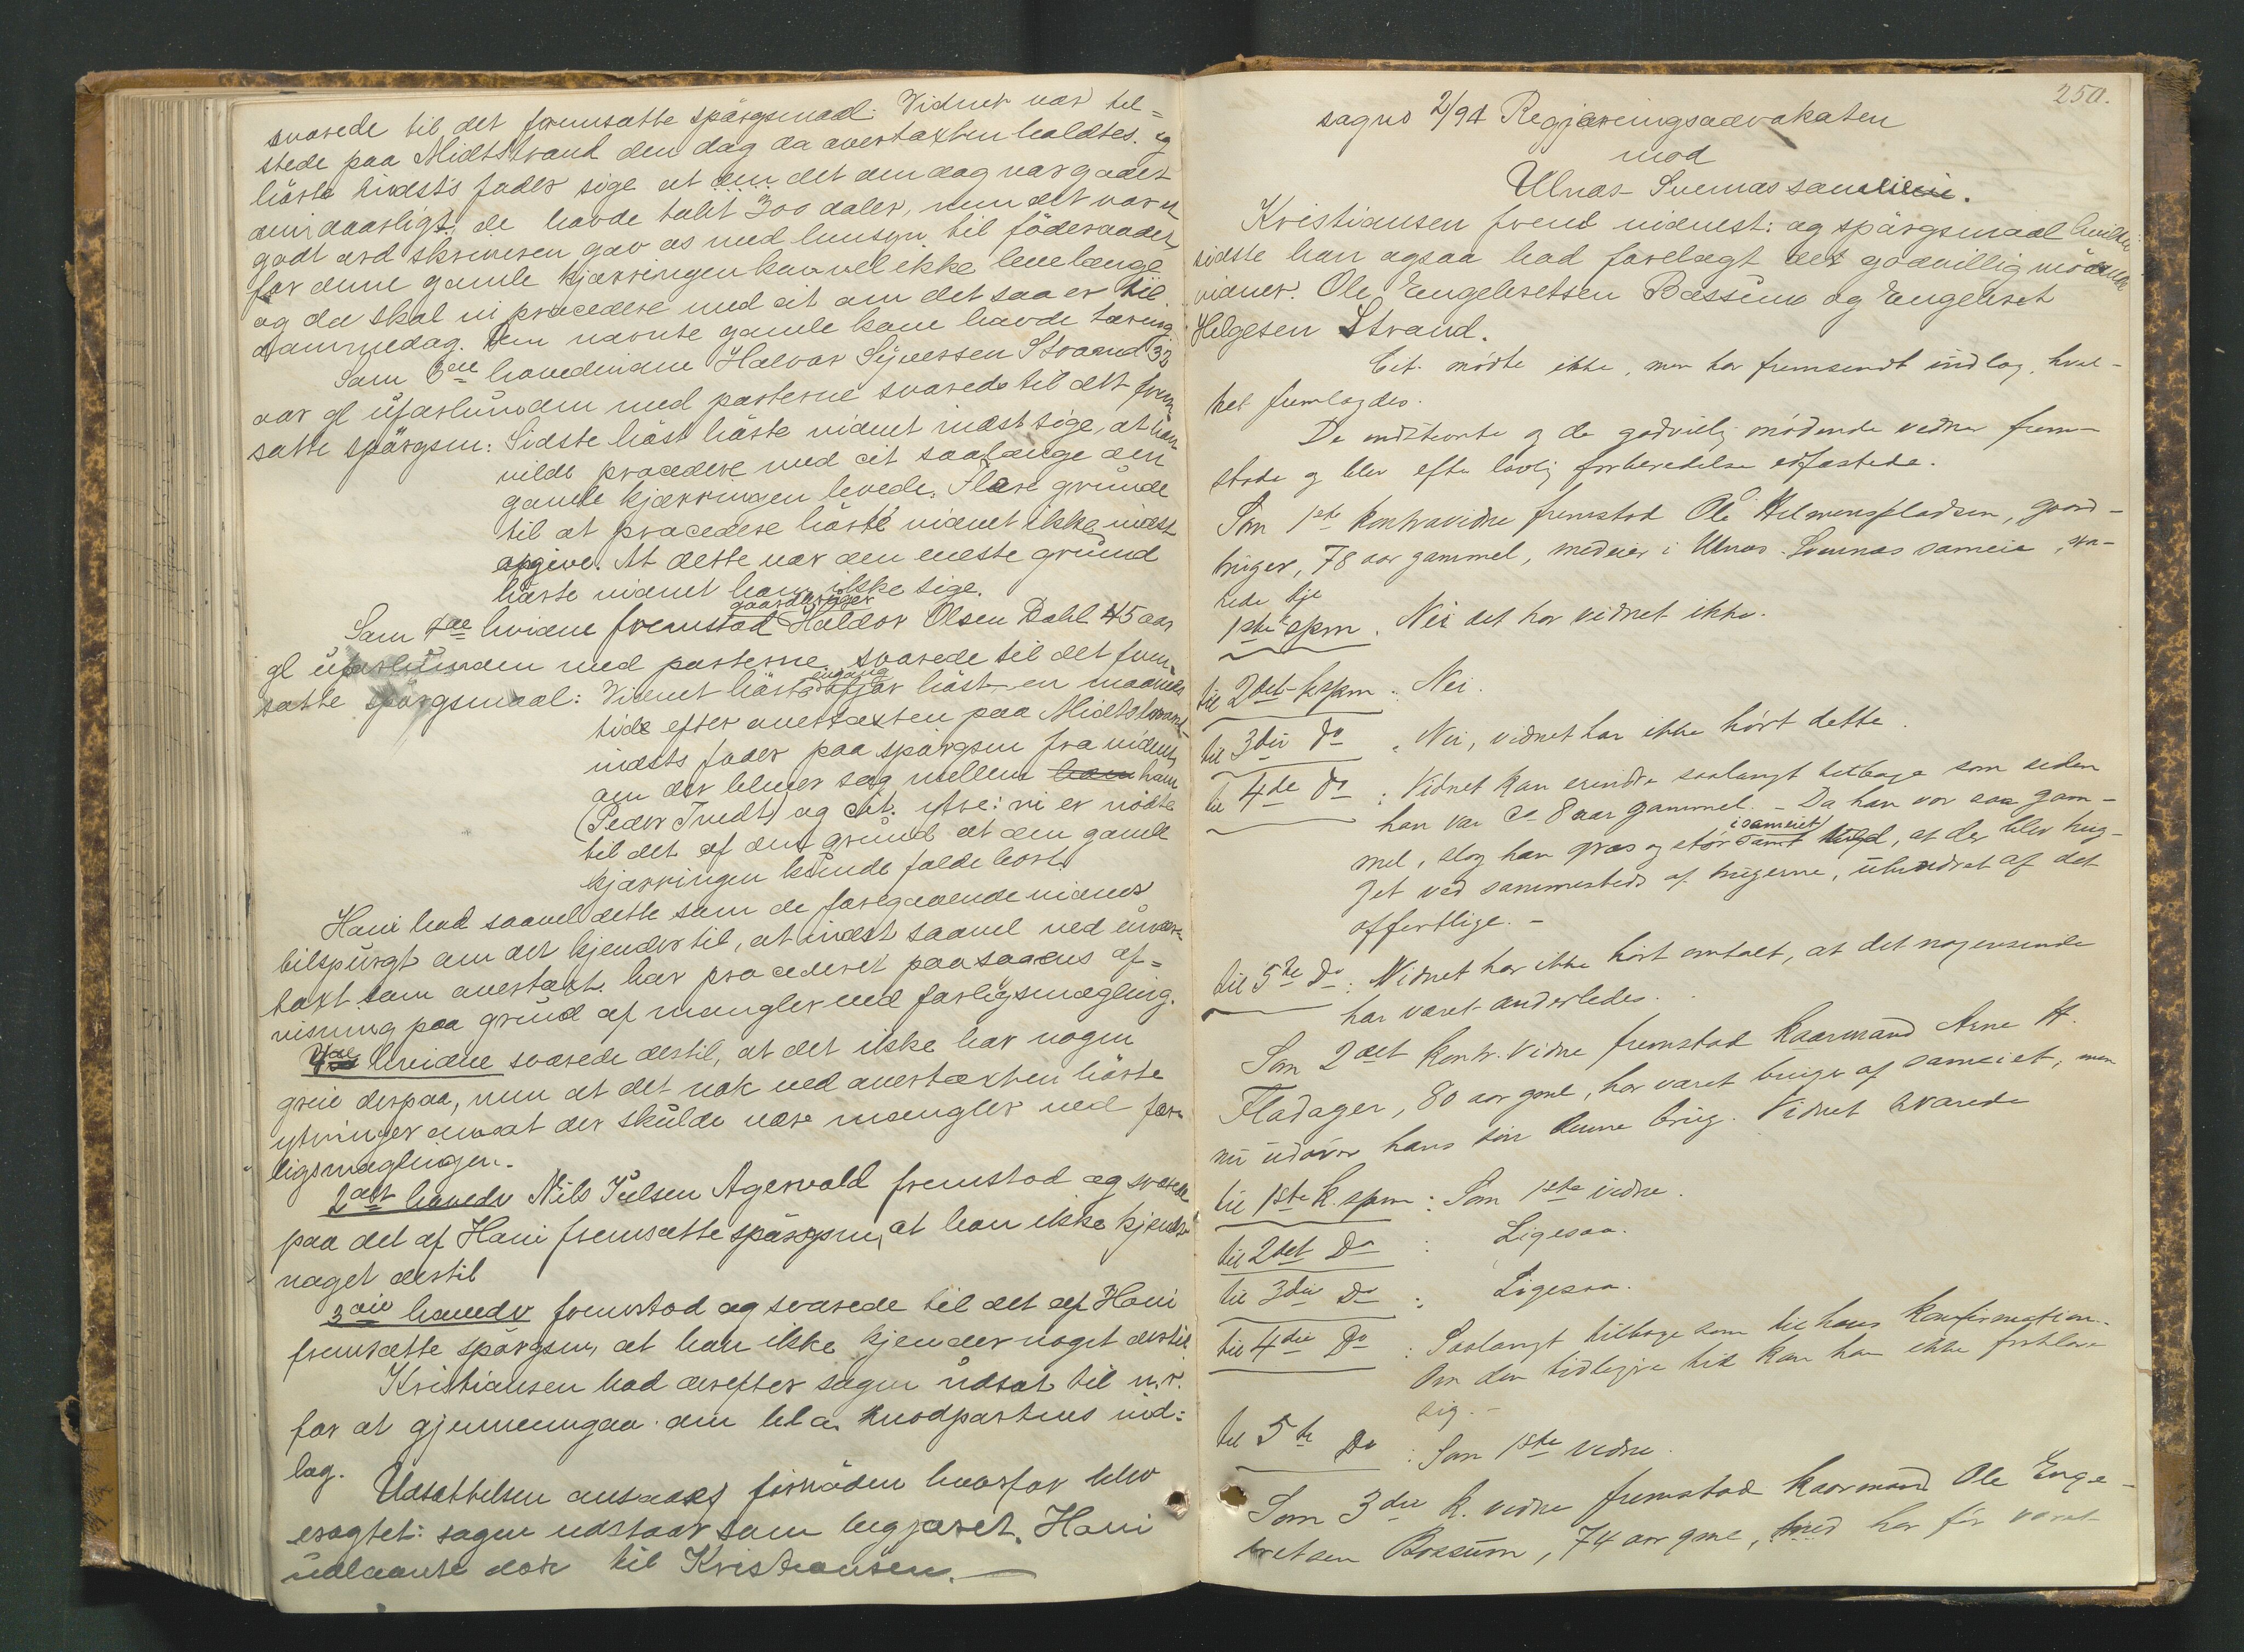 svarede til det fremsatte spårgsmaal: Vidnet var til=
stede paa Midtstrand den dag da overtaxten holdtes. og
hårte indst's fader sige at det om dag var gaaet
dem daarligt, de havde tabt 300 daler, men det var et
godt ord skriveren gav os med hensyn til föderaadet
for denne gamle kjærringen kan vel ikke leve længe
og da skal vi procedere med cit om det saa er til
dommedag. Den nævnte gamle kone havde tæring
Som 3die hovedvidne Halvor Syversen Strand 32
aar gl uforbunden med parterne svarede til det frem-
satte spårgsm: Sidste håst hårte vidnet indst sige, at han
vilde procedere med cit saalænge den
gamle kjærringen levede. Flere grunde
til at procedere hårte vidnet ikke indst
opgive. At dette var den eneste grund
hårte vidnet ham ikke sige.
Som 4de hvidne fremstod gaardbruger Haldor Olsen Dahl 45 aar
gl uforbunden med parterne svarede til det frem-
satte spårgsmaal: Vidnet hårte engang ifjor håst en maaneds
tid efter overtaxten paa Midtstrand
indsts fader paa spårgsm fra vidnet
om der bliver sag mellem ham
(Peder Tredt) og cit. ytre: vi er nödte
til det af den grund at den gamle
kjærringen kunde falde bort.
Hani bad saavel dette som de foregaaende vidner
tilspurgt om det kjender til, at indst saavel ved under-
taxt som overtaxt har procederet paa sagens af=
visning paa grund af mangler ved forligsmægling.
4de hvidne svarede dertil, at det ikke har nogen
greie derpaa, men at det nok ved overtaxten hårte
ytringer om at der skulde være mangler ved for-
ligsmæglingen.
2det hovedv Nils Julsen Agervold fremstod og svarede
paa det af Hani fremsatte spårgsm, at han ikke kjender
noget dertil
3die hovedv fremstod og svarede til det af Hani
fremsatte spårgsm, at han ikke kjender noget dertil
Kristiansen bad derefter sagen udsat til n.r.
for at gjennemgaa den bl.a. modpartens ind=
læg.
Udsættelsen ansaaes fornöden hvorfor blev
eragtet: sagen udstaar som begjæret. Hani
udlaante dok til Kristiansen. —
250.
sagno 2/94 Regjæringsadvokaten
mod
Ulnæs Svennes sameie.
Kristiansen frem vidnest: og spårgsmaal hvilke
sidste han ogsaa bad forelagt det godvillig mödende
vidner. Ole Engebretsen Bossum og Engebret
Helgesen Strand.
Cit. mödte ikke, men har fremsendt indlæg, hvil-
ket fremlagdes.
De indstevnte og de godvillig mödende vidner frem-
stode og blev efter lovlig forberedelse edfæstede.
Som 1ste kontravidne fremstod Ole Helmengpladsen, gaard-
bruger, 78 aar gammel, medeier i Ulnæs-Svennes sameie, sva-
rede til
1ste spm. Nei det har vidnet ikke.
til 2det k.spm: Nei.
til 3die Do. Nei, vidnet har ikke hört dette.
til 4de Do: Vidnet kan erindre saalangt tilbage som siden
han var ca 8 aar gammel. - Da han var saa gam-
mel, slog han græs og stör i sameiet samt , at der blev hug-
get ved sammesteds af brugerne, uhindret af det
offentlige. -
til 5te Do: Vidnet har ikke hört omtalt, at det nogensinde
har været anderledes.
Som 2det kontr. vidne fremstod kaarmand Arne H.
Fladager, 80 aar gml, har været bruger af sameiet, men
nu udöver hans sön denne brug. Vidnet svarede
til 1ste k. spm: Som 1ste vidne.
til 2det Do : Ligesaa.
til 3die Do : Ligesaa.
til 4die Do : Saalangt tilbage som til hans konfirmation.
Om den tidligere tid kan han ikke forklare
sig. -
til 5te Do : Som 1ste vidne.
Som 3die k. vidne fremstod kaarmand Ole Enge-
bretsen Bossum, 74 aar gml, har för været